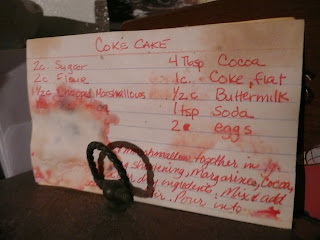 COKE CAKE
2c. Sugar
2c Flour
1 1/2c Chopped Marshallows
4 Tbsp Cocoa
1c. Coke, flat
1/2c Buttermilk
1 tsp Soda
2 eggs
marshmallow together in
shortening, Margarine, Cocoa,
dry ingredients. Mix & add
Pour into